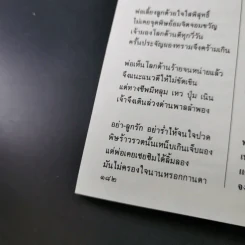 พ่อเลี้ยงลูกด้วยใจใสพิสุทธิ์
ไม่เคยจุดพิษย้อมจิตจอมขวัญ
เจ้ามองโลกด้านดีทุกวี่วัน
ครั้นประจัญมองทรามจึงคร้ามเกิน
พ่อเห็นโลกด้านร้ายจนหน่ายแล้ว
จึงแนะแนวดีให้ไม่ขัดเขิน
แต่ทางชีพมีหลุม เหว ปุ่ม เนิน
เจ้าจึงเดินล่วงด่านพาลลำพอง
อย่า-ลูกรัก อย่าร่ำให้จนใจปวด
พิษร้าวรวดนั้นเหน็บเกินเจ็บผอง
แต่พ่อเคยเชยชิมได้ลิ้มลอง
มันไม่ครองใจนานพรอกกานดา
๑๔๒